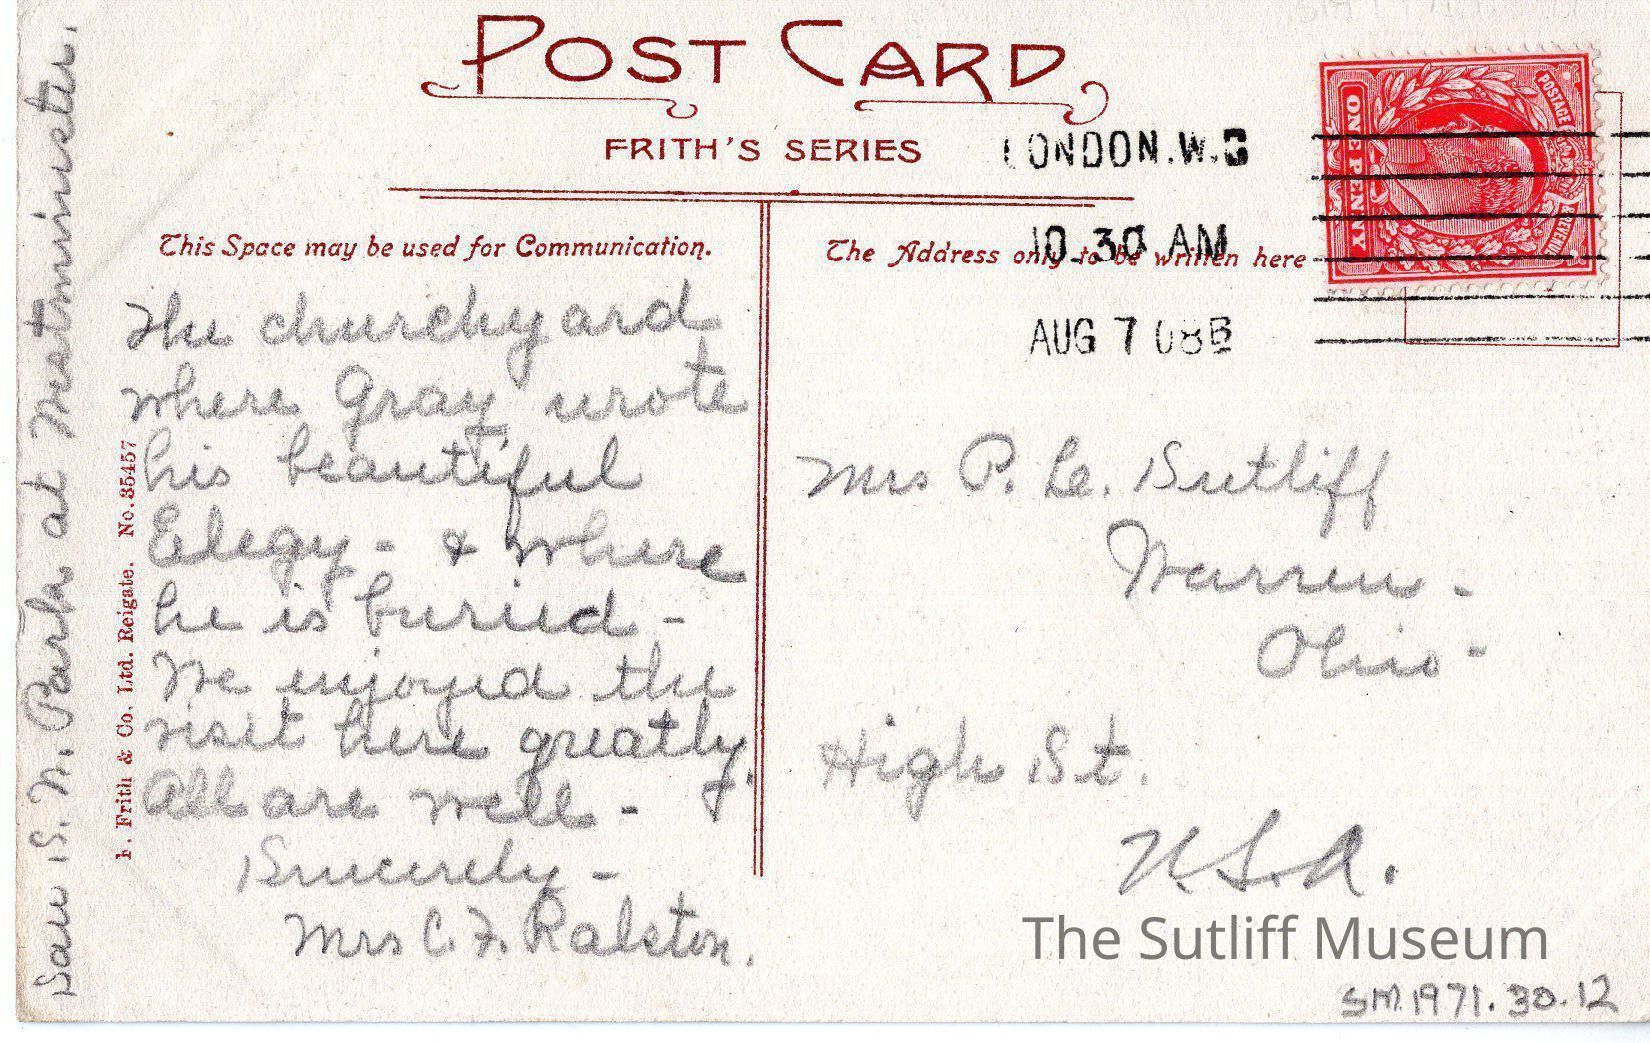 POST CARD
FRITH'S SERIES
LONDON.W.C
10.30 AM
AUG 7 08
POSTAGE
REVENUE
ONE PENNY
This Space may be used for Communication.
The Address only to be written here
The churchyard
where Gray wrote
his beautiful
Elegy - & where
he is buried -
We enjoyed the
visit here greatly.
All are well -
Sincerely -
Mrs C. F. Ralston.
Saw S. N. Park at Westminster.
F. Frith & Co. Ltd. Reigate. No. 35457
Mrs P. L. Sutliff
Warren -
Ohio -
High St.
U.S.A.
The Sutliff Museum
SM.1971.30.12